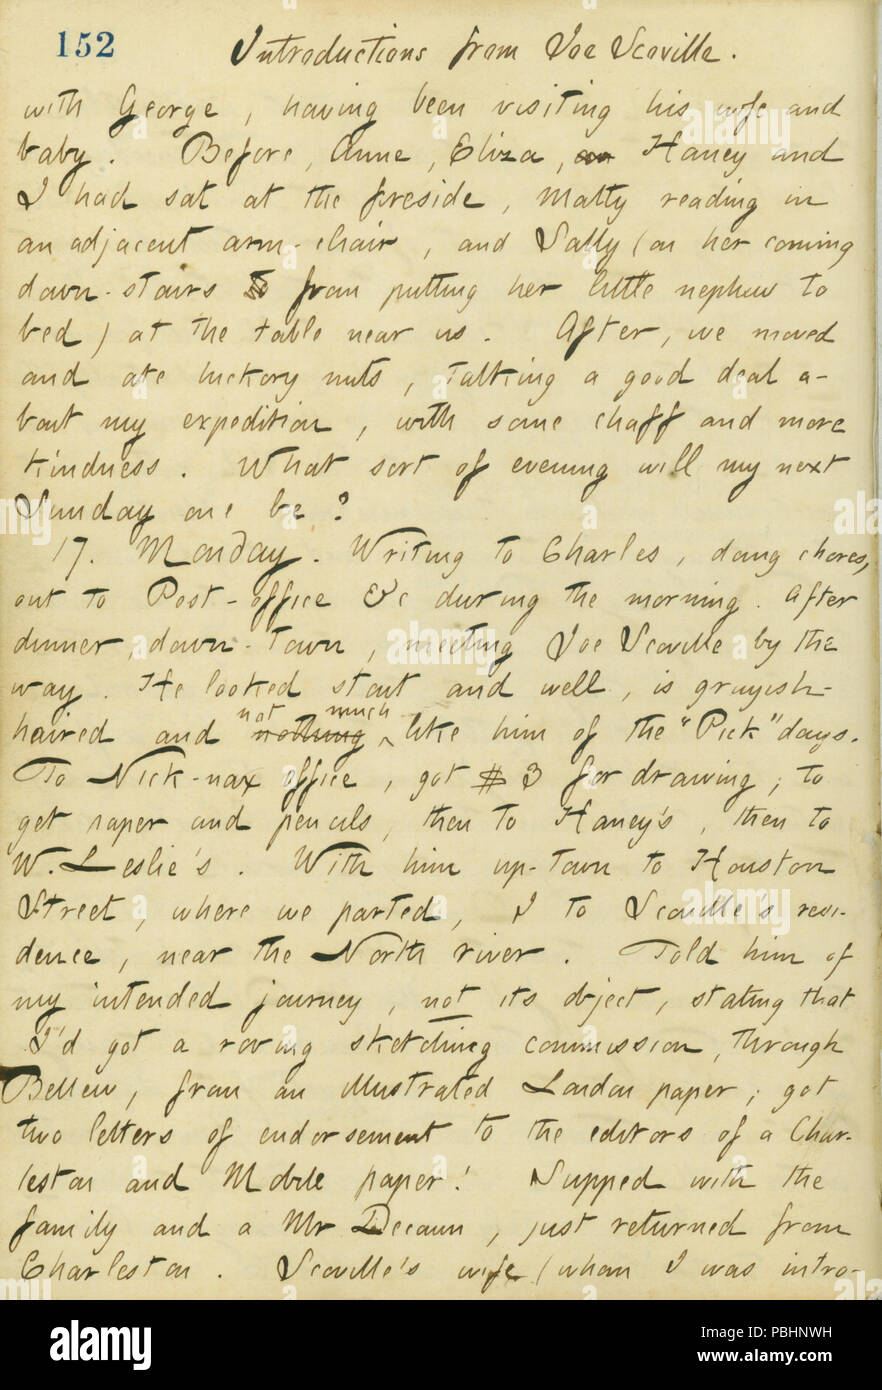 152
Introductions from Joe Scoville.
with George, having been visiting his wife and
baby. Before, Anne, Eliza, Haney and
I had sat at the fireside, Matty reading in
an adjacent arm-chair, and Sally (on her coming
down-stairs from putting her little nephew to
bed) at the table near us. After, we moved
and ate hickory nuts, talking a good deal a-
bout my expedition, with some chaff and more
kindness. What sort of evening will my next
Sunday one be?
17. Monday. Writing to Charles, doing chores,
out to Post-office &c during the morning. After
dinner, down-town, meeting Joe Scoville by the
way. He looked stout and well, is grayish-
haired and nothing not much like him of the "Pick" days.
To Nick-nax office, got $3 for drawing; to
get paper and pencils, then to Haney's, then to
W. Leslie's. With him up-town to Houston
Street, where we parted, I to Scoville's resi-
dence, near the North river. Told him of
my intended journey, not its object, stating that
I'd got a roving sketching commission, through
Bellew, from an illustrated London paper; got
two letters of endorsement to the editors of a Char-
leston and Mobile paper! Supped with the
family and a Mr Decaun, just returned from
Charleston. Scoville's wife (whom I was intro-
alamy
Image ID: PBHNWH
www.alamy.com